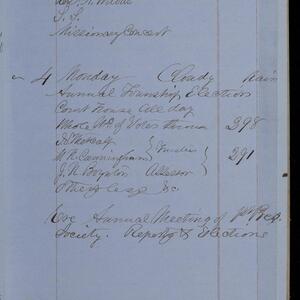 S. S.
Missionary Concert
4 Monday Cloudy Rain
Annual Township Election
Court House All day
Whole No. of Votes thrown 298
D. Metcalf
W. R. Cunningham } Trustee } 291
J. R. Boynton Assessor
others less &c
Eve Annual Meeting of Pres.
Society. Reports & Elections